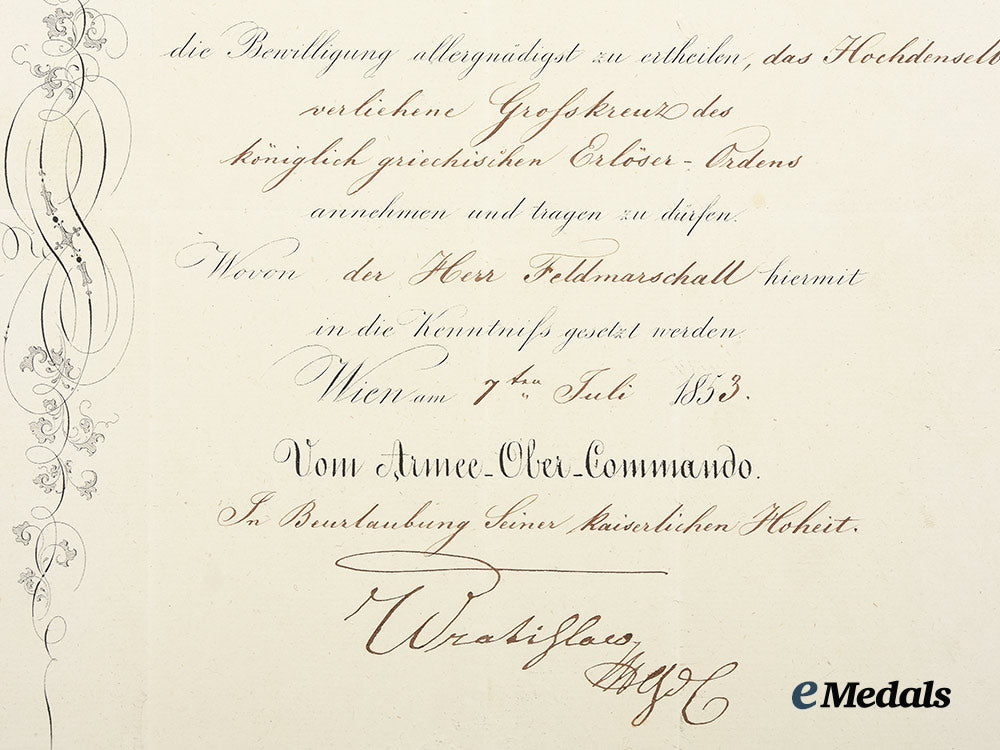 die Bewilligung allergnädigst zu ertheilen, das Hochdenselb
verliehene Großkreuz des
königlich griechischen Erlöser-Ordens
annehmen und tragen zu dürfen.
Wovon der Herr Feldmarschall hiermit
in die Kenntniß gesetzt werden.
Wien am 7ten Juli 1853.
Vom Armee-Ober-Commando.
In Beurlaubung Seiner kaiserlichen Hoheit.
Wratislaw
eMedals